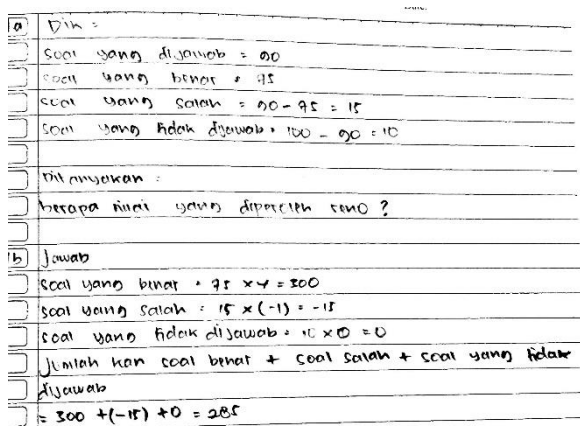 1a Dik =
soal yang dijawab = 90
soal yang benar = 75
soal yang salah = 90 - 75 = 15
soal yang tidak dijawab = 100 - 90 = 10
Ditanyakan :
berapa nilai yang diperoleh reno ?
b Jawab
soal yang benar = 75 x 4 = 300
soal yang salah = 15 x (-1) = -15
soal yang tidak dijawab = 10 x 0 = 0
Jumlah kan soal benar + soal salah + soal yang tidak
dijawab
= 300 + (-15) + 0 = 285